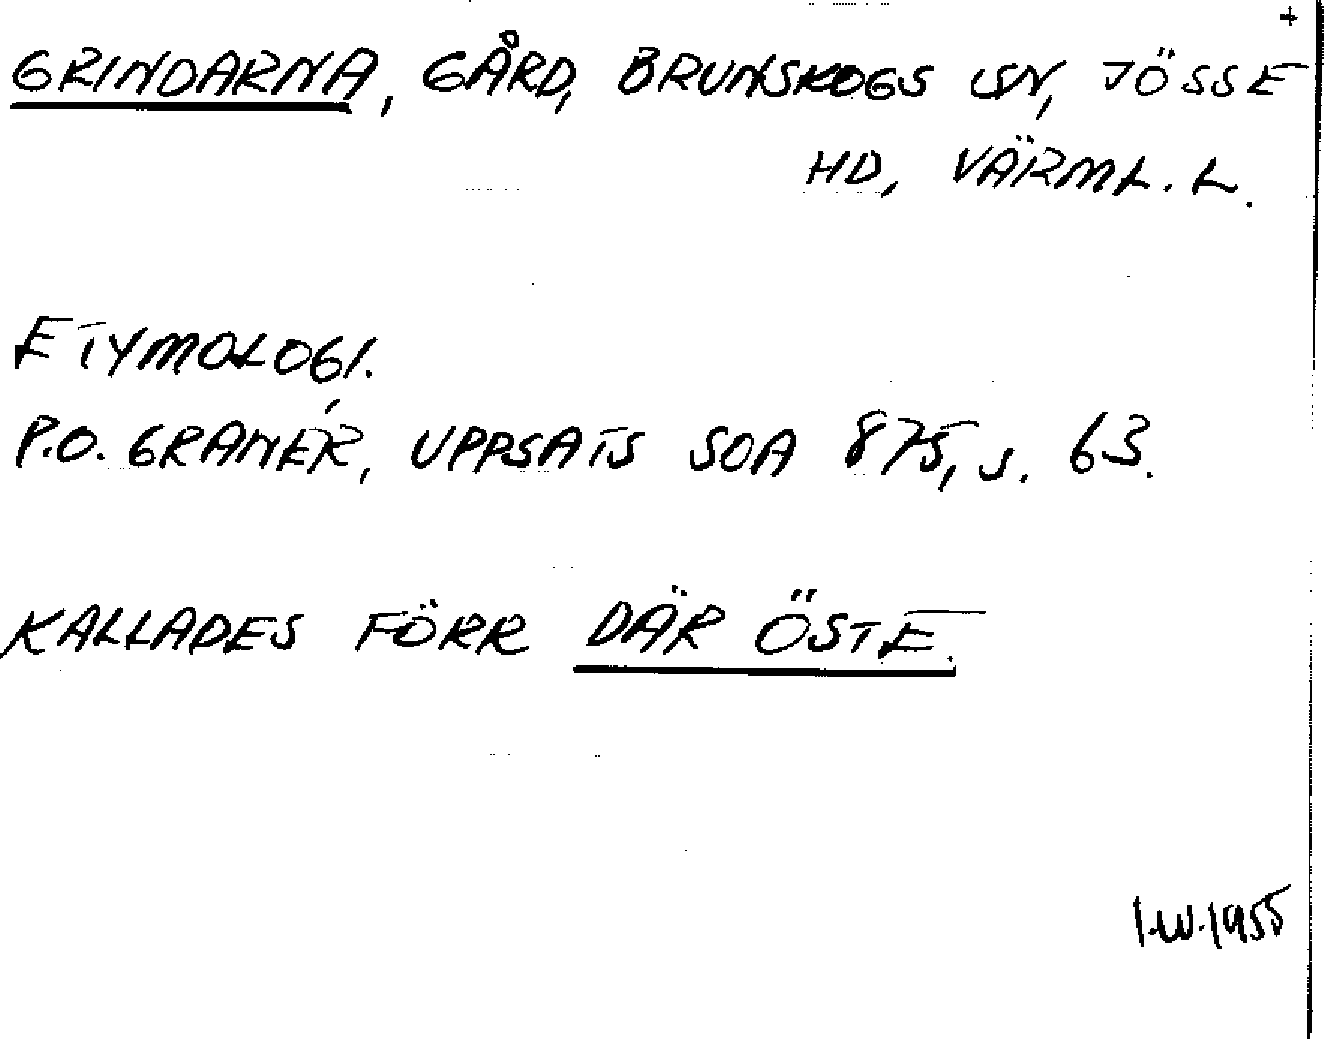 +
GRINDARNA, GÅRD, BRUNSKOGS SN, JÖSSE
HD, VÄRML. L.
ETYMOLOGI.
P.O. GRANÉR, UPPSATS SOA 875, S. 63.
KALLADES FÖRR DÄR ÖSTE.
I.W. 1955